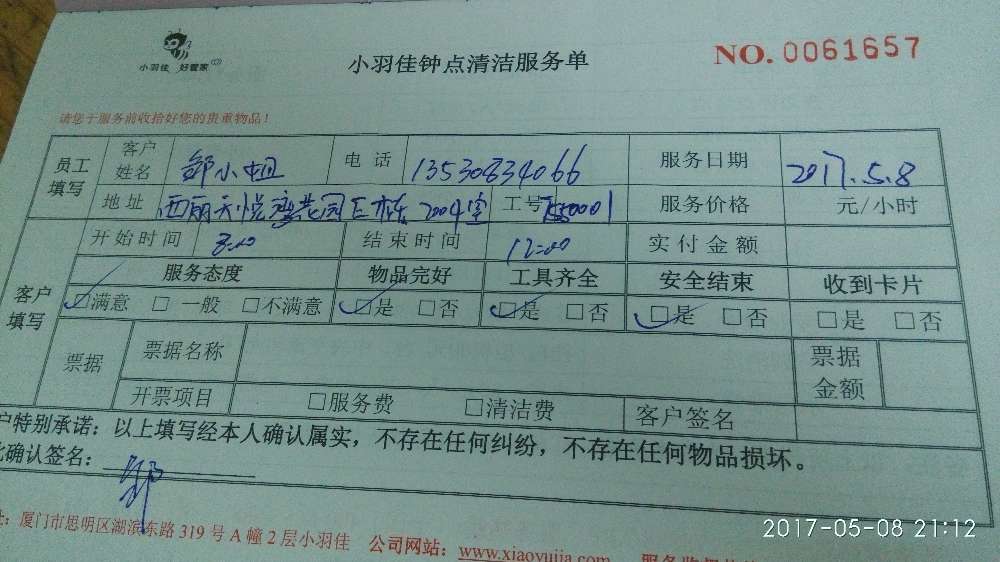 小羽佳 好管家
小羽佳钟点清洁服务单
NO. 0061657
请您于服务前收拾好您的贵重物品！
员工填写
客户姓名 邹小姐 电话 13530834066 服务日期 2017.5.8
地址 西丽天悦 花园 栋 2004室 工号 服务价格 元/小时
客户填写
开始时间 8:00 结束时间 12:00 实付金额
服务态度 物品完好 工具齐全 安全结束 收到卡片
☑满意 □一般 □不满意 ☑是 □否 ☑是 □否 ☑是 □否 □是 □否
票据 票据名称 票据金额
开票项目 □服务费 □清洁费 客户签名
户特别承诺：以上填写经本人确认属实，不存在任何纠纷，不存在任何物品损坏。
此确认签名： 邹
址：厦门市思明区湖滨东路 319 号 A 幢 2 层小羽佳 公司网站：www.xiaoyujia.com
2017-05-08 21:12